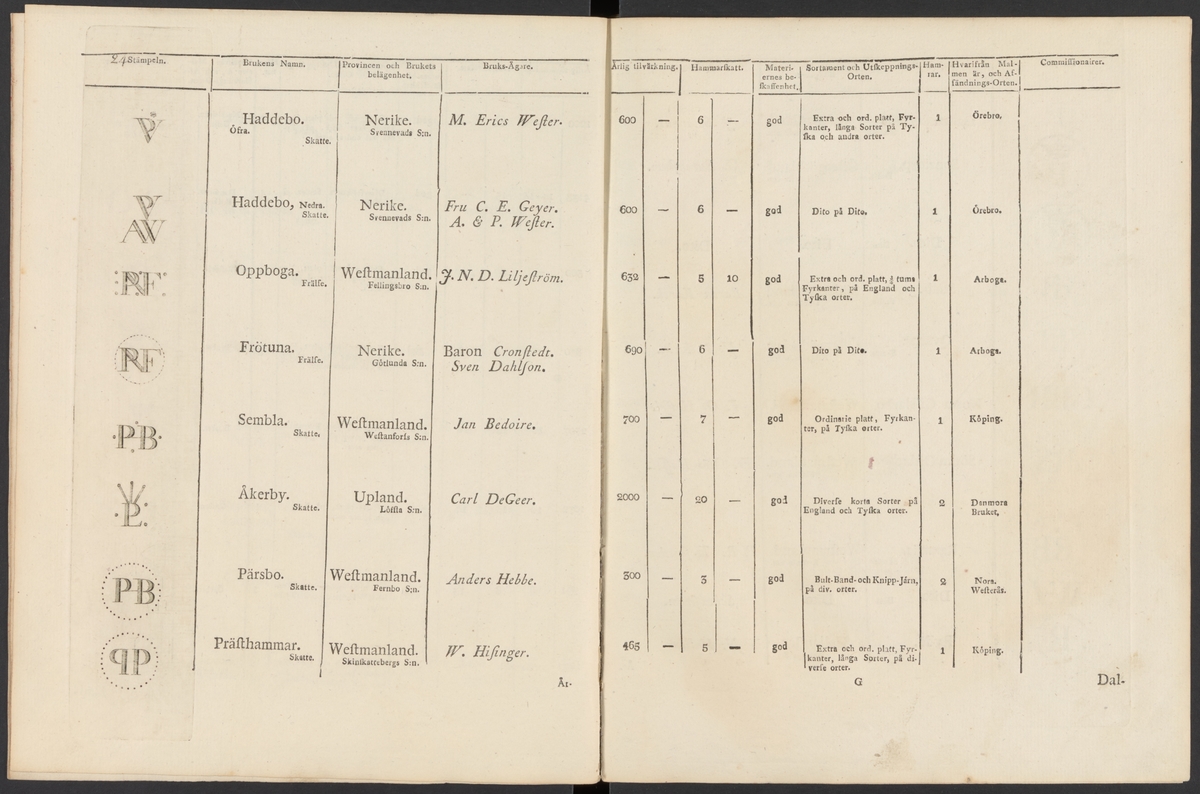 24 Stämpeln. Brukens Namn. Provincen och Brukets Bruks-Ägare. Årlig tilvärkning. Hammarſkatt. Materi- Sortament och Utſkeppnings- Ham- Hvarifrån Mal- Commiſſionairer.
belägenhet. ernes be- Orten. rar. men är, och Af-
ſkaffenhet. ſändnings-Orten.
V Haddebo. Nerike. M. Erics Weſter. 600 — 6 — god Extra och ord. platt, Fyr- 1 Örebro.
Öfra. Svennevads S:n. kanter, långa Sorter på Ty-
Skatte. ſka och andra orter.
Haddebo, Nedra. Nerike. Fru C. E. Geyer. 600 — 6 — god Dito på Dito. 1 Örebro.
Skatte. Svennevads S:n. A. & P. Weſter.
AW
RF Oppboga. Weſtmanland. J. N. D. Liljeſtröm. 632 — 5 10 god Extra och ord. platt, tums 1 Arboga.
Frälſe. Fellingsbro S:n. Fyrkanter, på England och
Tyſka orter.
RF Frötuna. Nerike. Baron Cronſtedt. 690 — 6 — god Dito på Dito. 1 Arboga.
Frälſe. Götlunda S:n. Sven Dahlſon.
PB Sembla. Weſtmanland. Jan Bedoire. 700 — 7 — god Ordinarie platt, Fyrkan- 1 Köping.
Skatte. Weſtanforſs S:n. ter, på Tyſka orter.
L Åkerby. Upland. Carl DeGeer. 2000 — 20 — god Diverſe korta Sorter på 2 Danmora
Skatte. Löfſta S:n. England och Tyſka orter. Bruket.
PB Pärsbo. Weſtmanland. Anders Hebbe. 300 — 3 — god Bult-Band- och Knipp-Järn, 2 Nora.
Skatte. Fernbo S:n. på div. orter. Weſterås.
PP Präſthammar. Weſtmanland. W. Hiſinger. 465 — 5 — god Extra och ord. platt, Fyr- 1 Köping.
Skatte. Skinſkattebergs S:n. kanter, långa Sorter, på di-
verſe orter.
År- G Dal-